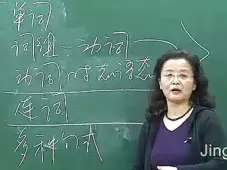 单词
词组：动词
动词时态语态
连词
多种句式
Jing